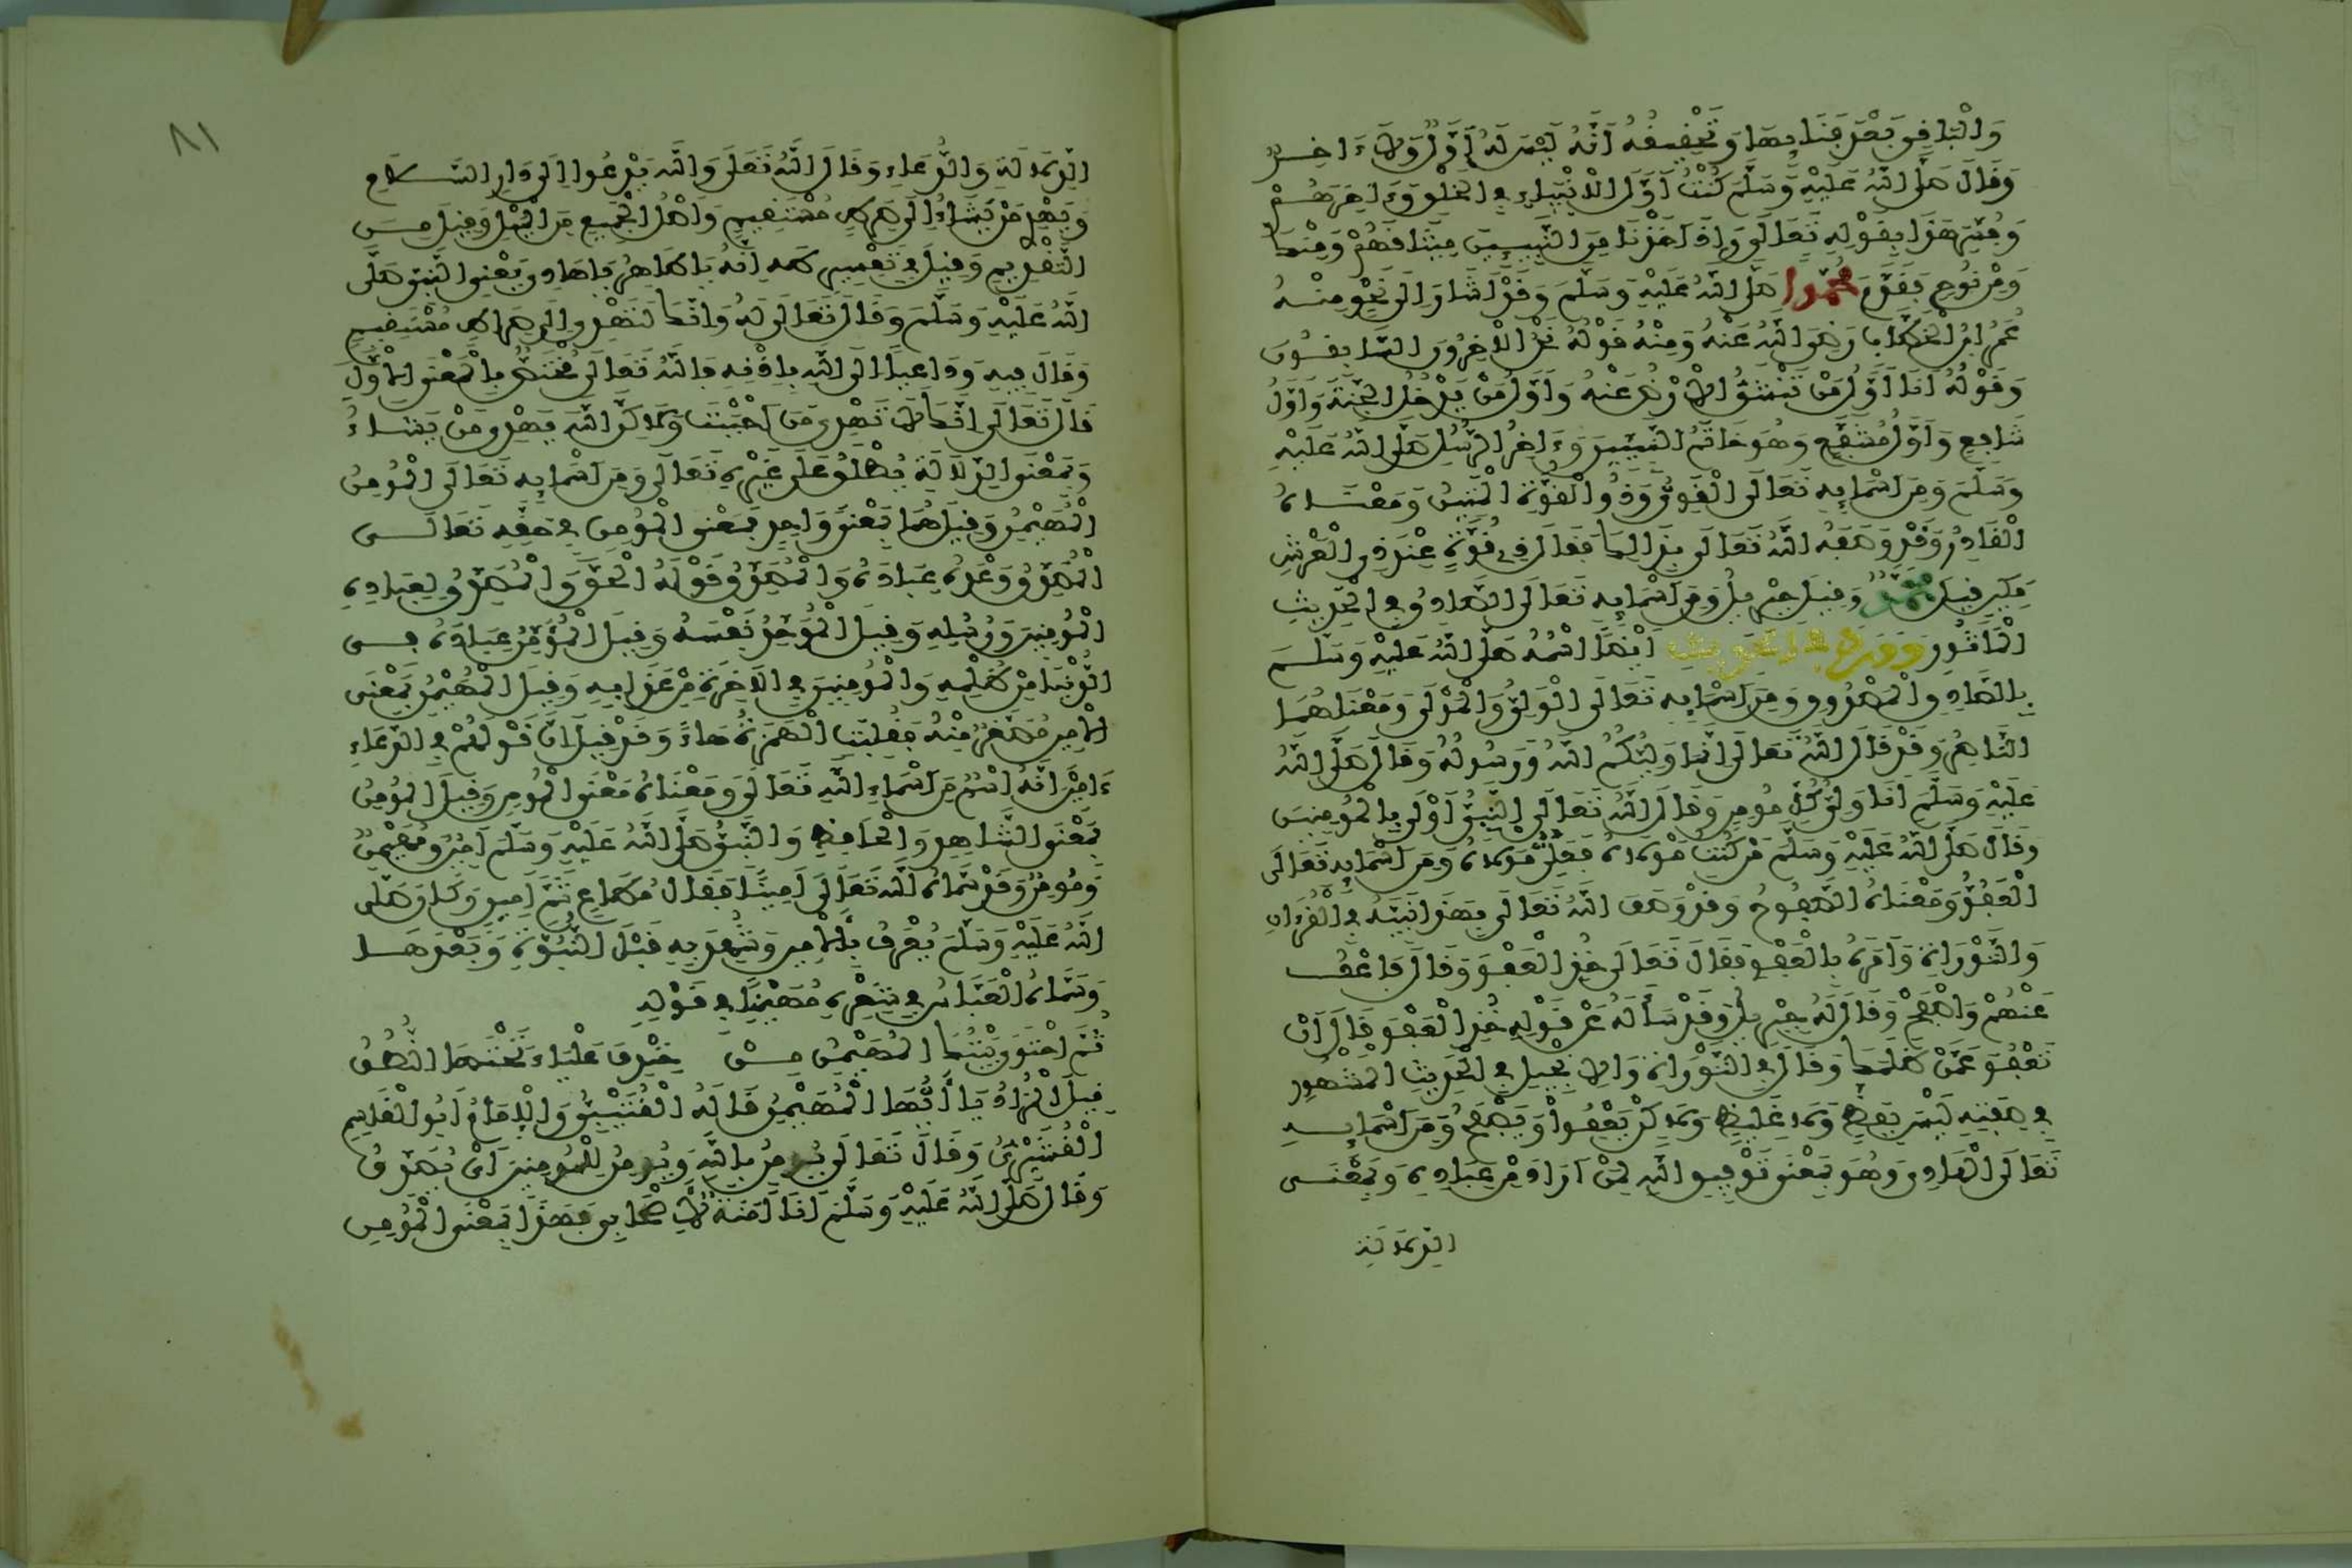 وَالْبَاقِي بَعْدَ فَنَائِهَا وَتَحْقِيقُهُ أَنَّهُ لَيْسَ لَهُ أَوَّلٌ وَلَا ءَاخِرٌ
وَقَالَ صَلَّى اللَّهُ عَلَيْهِ وَسَلَّمَ كُنْتُ أَوَّلَ الْأَنْبِيَاءِ فِي الْخَلْقِ وَءَاخِرَهُمْ
وَفُسِّرَ هَذَا بِقَوْلِهِ تَعَالَى وَإِذْ أَخَذْنَا مِنَ النَّبِيِّينَ مِيثَاقَهُمْ وَمِنْكَ
وَمِنْ نُوحٍ فَقَدَّمَ مُحَمَّدًا صَلَّى اللَّهُ عَلَيْهِ وَسَلَّمَ وَقَدْ أَشَارَ إِلَى نَحْوٍ مِنْهُ
عُمَرُ ابْنُ الْخَطَّابِ رَضِيَ اللَّهُ عَنْهُ وَمِنْهُ قَوْلُهُ نَحْنُ الْآخِرُونَ السَّابِقُونَ
وَقَوْلُهُ أَنَا أَوَّلُ مَنْ تَنْشَقُّ الْأَرْضُ عَنْهُ وَأَوَّلُ مَنْ يَدْخُلُ الْجَنَّةَ وَأَوَّلُ
شَافِعٍ وَأَوَّلُ مُشَفَّعٍ وَهُوَ خَاتَمُ النَّبِيِّينَ وَءَاخِرُ الرُّسُلِ صَلَّى اللَّهُ عَلَيْهِ
وَسَلَّمَ وَمِنْ أَسْمَائِهِ تَعَالَى الْقَوِيُّ وَذُو الْقُوَّةِ الْمَتِينُ وَمَعْنَاهُ
الْقَادِرُ وَقَدْ وَصَفَهُ اللَّهُ تَعَالَى بِذَلِكَ فَقَالَ ذِي قُوَّةٍ عِنْدَ ذِي الْعَرْشِ
مَكِينٍ قِيلَ مُحَمَّدٌ وَقِيلَ جِبْرِيلُ وَمِنْ أَسْمَائِهِ تَعَالَى الصَّادِقُ فِي الْحَدِيثِ
الْمَأْثُورِ وَوَرَدَ فِي الْحَدِيثِ أَيْضًا اسْمُهُ صَلَّى اللَّهُ عَلَيْهِ وَسَلَّمَ
بِالصَّادِقِ الْمَصْدُوقِ وَمِنْ أَسْمَائِهِ تَعَالَى الْوَلِيُّ وَالْمَوْلَى وَمَعْنَاهُمَا
النَّاصِرُ وَقَدْ قَالَ اللَّهُ تَعَالَى إِنَّمَا وَلِيُّكُمُ اللَّهُ وَرَسُولُهُ وَقَالَ صَلَّى اللَّهُ
عَلَيْهِ وَسَلَّمَ أَنَا وَلِيُّ كُلِّ مُومِنٍ وَقَالَ اللَّهُ تَعَالَى النَّبِيُّ أَوْلَى بِالْمُومِنِينَ
وَقَالَ صَلَّى اللَّهُ عَلَيْهِ وَسَلَّمَ مَنْ كُنْتُ مَوْلَاهُ فَعَلِيٌّ مَوْلَاهُ وَمِنْ أَسْمَائِهِ تَعَالَى
الْعَفُوُّ وَمَعْنَاهُ الصَّفُوحُ وَقَدْ وَصَفَ اللَّهُ تَعَالَى بِهَذَا نَبِيَّهُ فِي الْقُرْءَانِ
وَالتَّوْرَاةِ وَأَمَرَهُ بِالْعَفْوِ فَقَالَ تَعَالَى خُذِ الْعَفْوَ وَقَالَ فَاعْفُ
عَنْهُمْ وَاصْفَحْ وَقَالَ لَهُ جِبْرِيلُ وَقَدْ سَأَلَهُ عَنْ قَوْلِهِ خُذِ الْعَفْوَ قَالَ أَنْ
تَعْفُوَ عَمَّنْ ظَلَمَكَ وَقَالَ فِي التَّوْرَاةِ وَالْإِنْجِيلِ فِي الْحَدِيثِ الْمَشْهُورِ
فِي صِفَتِهِ لَيْسَ بِفَظٍّ وَلَا غَلِيظٍ وَلَكِنْ يَعْفُوا وَيَصْفَحُ وَمِنْ أَسْمَائِهِ
تَعَالَى الْهَادِي وَهُوَ بِمَعْنَى تَوْفِيقِ اللَّهِ لِمَنْ أَرَادَ مِنْ عِبَادِهِ وَبِمَعْنَى
الدِّلَالَةِ
٨١
الدِّلَالَةِ وَالدُّعَاءِ وَقَالَ اللَّهُ تَعَلَى وَاللَّهُ يَدْعُوا إِلَى دَارِ السَّلَامِ
وَيَهْدِي مَنْ يَشَاءُ إِلَى صِرَاطٍ مُسْتَقِيمٍ وَأَصْلُ الْجَمِيعِ مِنَ الْمَيْلِ وَقِيلَ مِنَ
التَّقْدِيمِ وَقِيلَ فِي تَفْسِيرِ طه إِنَّهُ يَا طَاهِرُ يَا هَادِي يَعْنِي النَّبِيَّ صَلَّى
اللَّهُ عَلَيْهِ وَسَلَّمَ وَقَالَ تَعَالَى لَهُ وَإِنَّكَ لَتَهْدِي إِلَى صِرَاطٍ مُسْتَقِيمٍ
وَقَالَ فِيهِ وَدَاعِيًا إِلَى اللَّهِ بِإِذْنِهِ فَاللَّهُ تَعَالَى مُخْتَصٌّ بِالْمَعْنَى الْأَوَّلِ
قَالَ تَعَالَى إِنَّكَ لَا تَهْدِي مَنْ أَحْبَبْتَ وَلَكِنَّ اللَّهَ يَهْدِي مَنْ يَشَاءُ
وَبِمَعْنَى الدِّلَالَةِ يُطْلَقُ عَلَى غَيْرِهِ تَعَالَى وَمِنْ أَسْمَائِهِ تَعَالَى الْمُومِنُ
الْمُهَيْمِنُ وَقِيلَ هُمَا بِمَعْنًى وَاحِدٍ فَمَعْنَى الْمُومِنِ فِي حَقِّهِ تَعَالَى
الْمُصَدِّقُ وَعْدَهُ عِبَادَهُ وَالْمُصَدِّقُ قَوْلَهُ الْحَقَّ وَالْمُصَدِّقُ لِعِبَادِهِ
الْمُومِنِينَ وَرُسُلِهِ وَقِيلَ الْمُوَحِّدُ نَفْسَهُ وَقِيلَ الْمُؤَمِّنُ عِبَادَهُ فِي
الدُّنْيَا مِنْ ظُلْمِهِ وَالْمُومِنِينَ فِي الْآخِرَةِ مِنْ عَذَابِهِ وَقِيلَ الْمُهَيْمِنُ بِمَعْنَى
الْأَمِينِ مُصَغَّرٌ مِنْهُ فَقُلِبَتِ الْهَمْزَةُ هَاءً وَقَدْ قِيلَ إِنَّ قَوْلَهُمْ فِي الدُّعَاءِ
ءَامِينَ أَنَّهُ اسْمٌ مِنْ أَسْمَاءِ اللَّهِ تَعَالَى وَمَعْنَاهُ مَعْنَى الْمُومِنِ وَقِيلَ الْمُومِنُ
بِمَعْنَى الشَّاهِدِ وَالْحَافِظِ وَالنَّبِيُّ صَلَّى اللَّهُ عَلَيْهِ وَسَلَّمَ أَمِينٌ وَمُهَيْمِنٌ
وَمُومِنٌ وَقَدْ سَمَّاهُ اللَّهُ تَعَالَى أَمِينًا فَقَالَ مُطَاعٍ ثَمَّ أَمِينٍ وَكَانَ صَلَّى
اللَّهُ عَلَيْهِ وَسَلَّمَ يُعْرَفُ بِالْأَمِينِ وَشُهِرَ بِهِ قَبْلَ النُّبُوَّةِ وَبَعْدَهَا
وَسَمَّاهُ الْعَبَّاسُ فِي شِعْرِهِ مُهَيْمِنًا فِي قَوْلِهِ
ثُمَّ احْتَوَى بَيْتُكَ الْمُهَيْمِنُ مِنْ خِنْدِفَ عَلْيَاءَ تَحْتَهَا النُّطُقُ
قِيلَ الْمُرَادُ يَا أَيُّهَا الْمُهَيْمِنُ قَالَهُ الْقُتَيْبِيُّ وَالْإِمَامُ أَبُو الْقَاسِمِ
الْقُشَيْرِيُّ وَقَالَ تَعَالَى يُومِنُ بِاللَّهِ وَيُومِنُ لِلْمُومِنِينَ أَيْ يُصَدِّقُ
وَقَالَ صَلَّى اللَّهُ عَلَيْهِ وَسَلَّمَ أَنَا أَمَنَةٌ لِأَصْحَابِي فَهَذَا بِمَعْنَى الْمُومِنِ